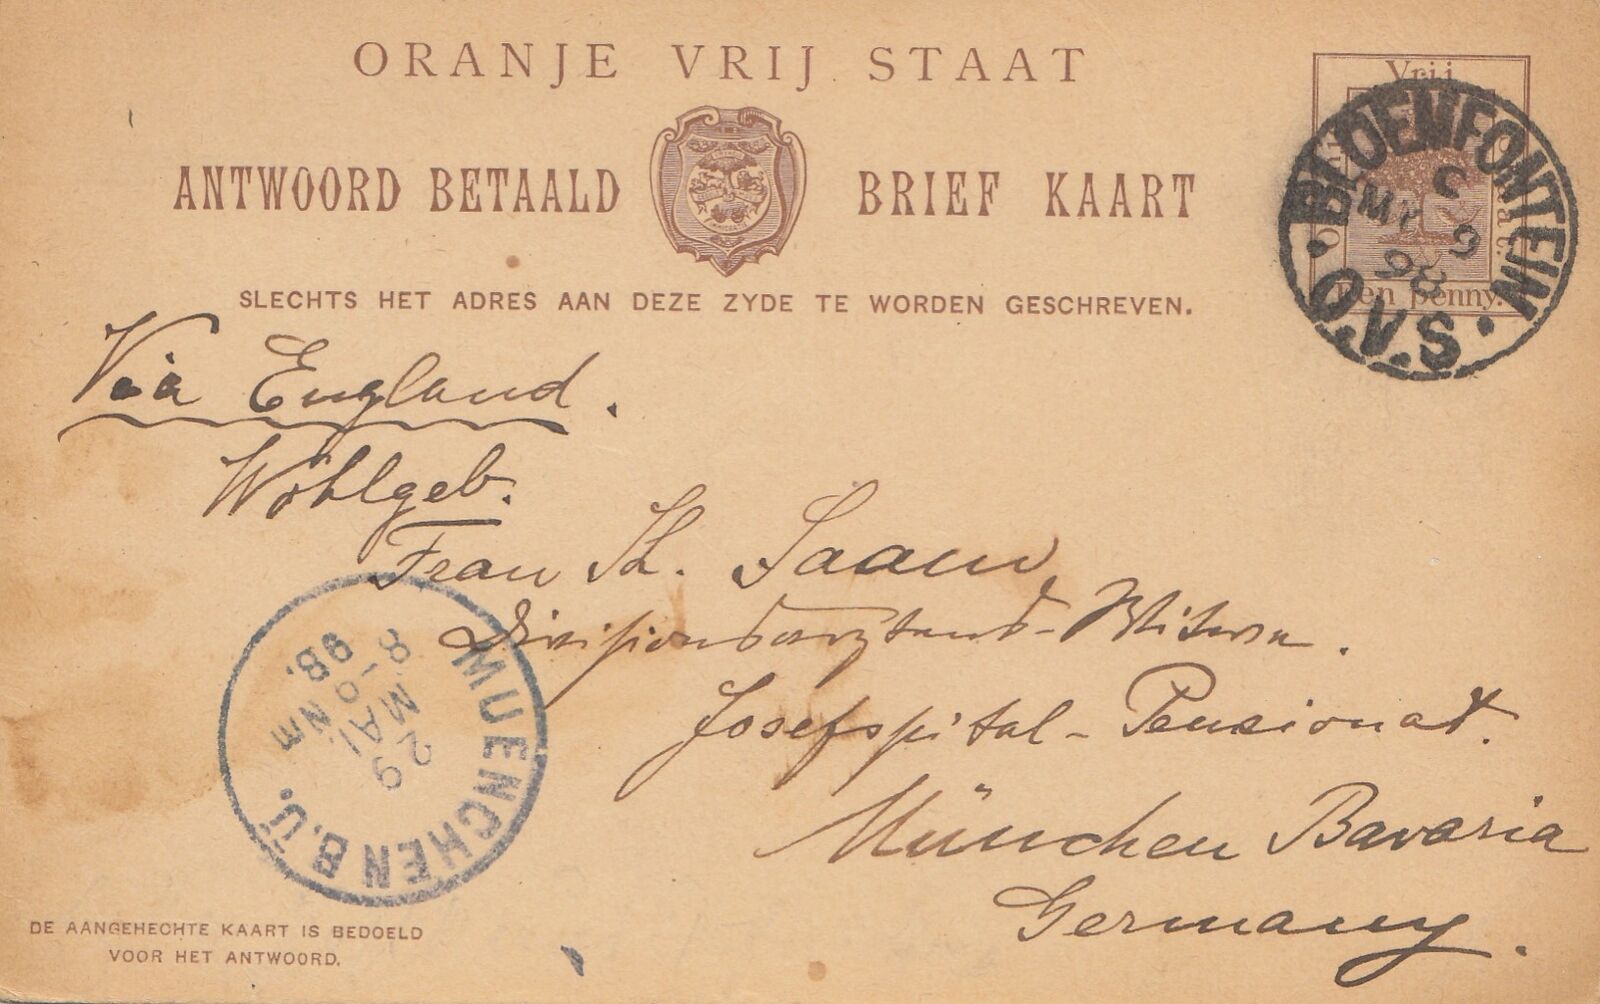 ORANJE VRIJ STAAT
ANTWOORD BETAALD BRIEF KAART
SLECHTS HET ADRES AAN DEZE ZYDE TE WORDEN GESCHREVEN.
Vrij
Een penny.
BLOEMFONTEIN
C
MY 9
98
O.V.S.
Via England.
Wohlgeb.
Frau Th.
Divisionsarztens-Witwe.
Josefspital-Pensionat.
München Bavaria
Germany.
MUENCHEN B.U.
29
MAI
8-9 Nm
98.
DE AANGEHECHTE KAART IS BEDOELD
VOOR HET ANTWOORD.